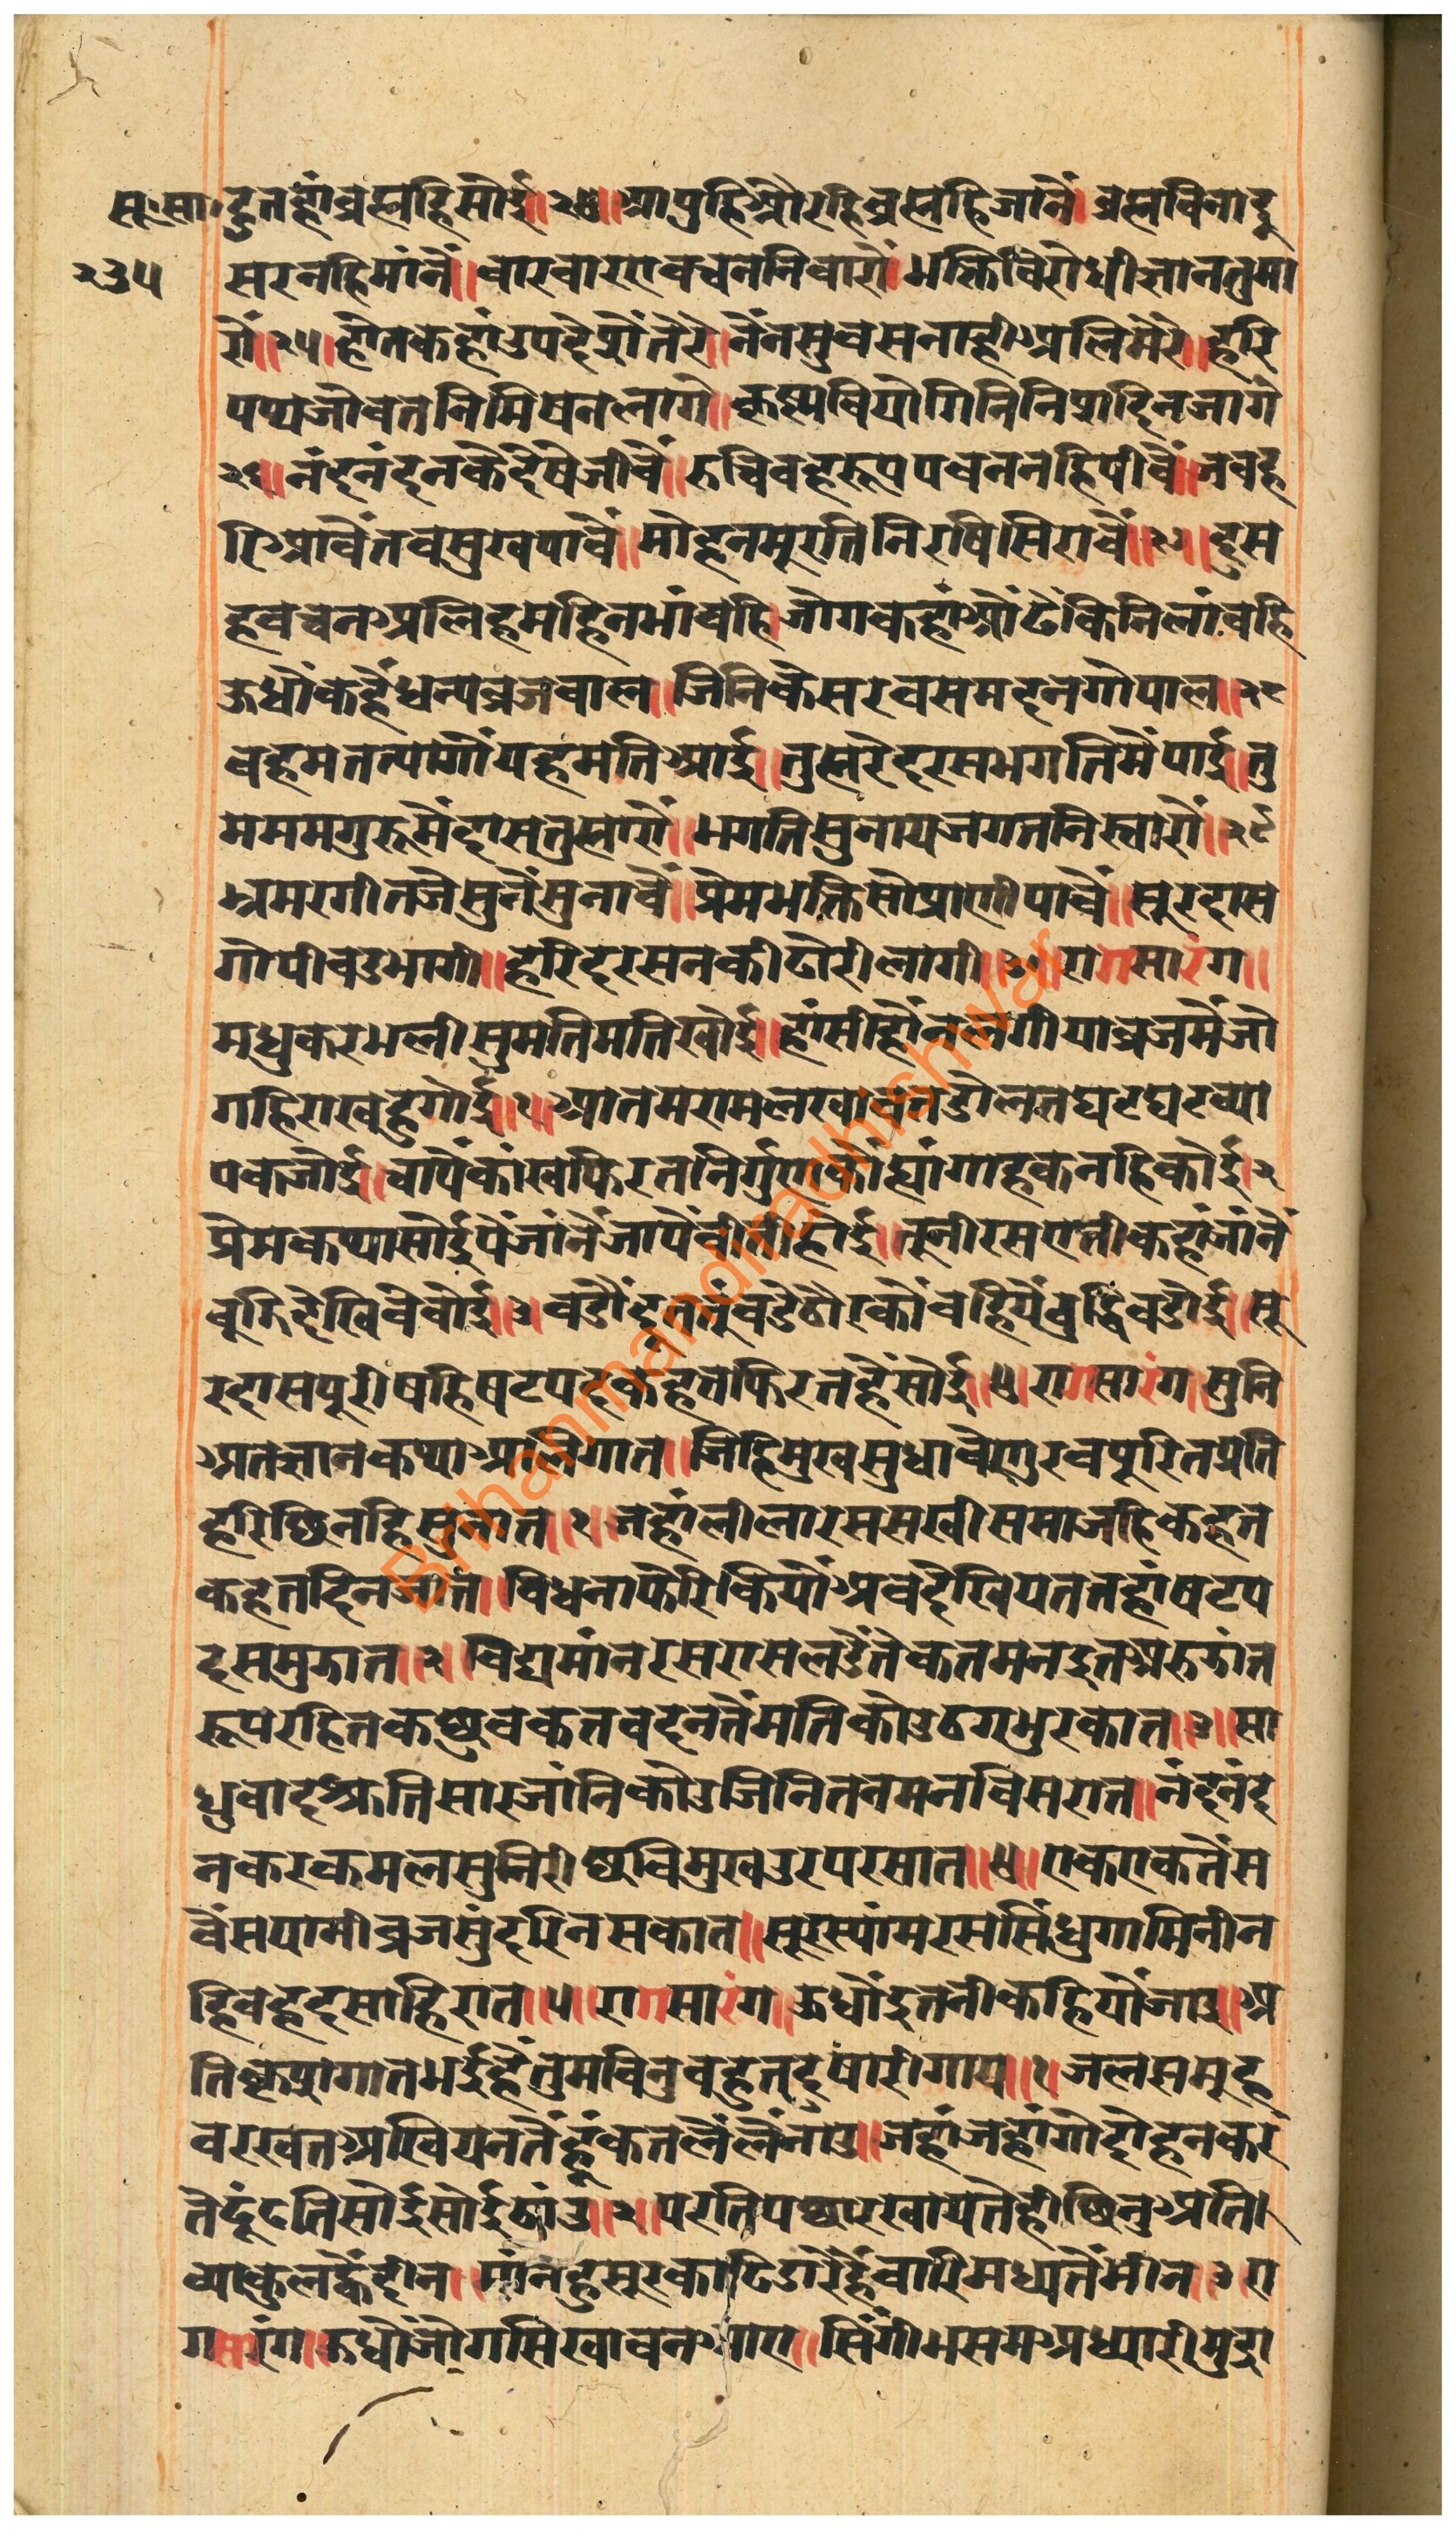 सू.सा. दुतहांब्रह्महिसोई॥२४॥आपुहिऔरहिब्रह्महिजानैं।ब्रह्मविनादू
२३५ सरनहिमांनैं॥वारवारएवचननिवारौ।भक्तिविरोधीज्ञानतुमा
रौं॥२५॥होतकहांउपदेसैंतेरे॥नैंनसुवसनाहीअलिमेरे॥हरि
पथजोवतनिमिषनलागे॥कृष्णवियोगिनिनिसदिनजागे
२६॥नंदनंदनकेदेषेजीवैं॥रुचिवहरूपपवननहिपीवैं॥जवह
रिआवैंतवसुखपावैं॥मोहनमूरतिनिरषिसिरावैं॥२७॥दुस
हवचनअलिहमहिनभांवहि।जोगकहांओंढैंकिनिलांवहि
ऊधौंकहैंधन्यव्रजवाल॥जिनिकेसरवसमदनगोपाल॥२८
वहमतत्यागौंयहमतिआई॥तुह्मरेदरसभगतिमैंपाई॥तु
मममगुरुमैंदासतुह्मारौं॥भगतिसुनायजगतनिस्तारौं॥२९
भ्रमरगीतजेसुनैंसुनावैं॥प्रेमभक्तिसोप्राणीपावैं॥सूरदास
गोपीवडभागी॥हरिदरसनकीढोरीलागी॥३०॥रागसारंग॥
मधुकरभलीसुमतिमतिखोई॥हांसीहौंनलगीयाव्रजमैंजो
गहिराखहुगोई॥१॥आतमरामलखावतडोलतघटघटव्या
पकजोई॥चांपेंकांखफिरतनिर्गुणकोंह्यांगाहकनहिकोई।२
प्रेमकथासोईपैंजांनैंजापैंवीतीहोई॥तूनीरसएतीकहांजांनैं
वूझिदेखिवेवोई।३वडौदूततूंवडेठौरकोंवहियेंबुद्धिवडोई॥सू
रदासपूरीषहिषटपदकहतफिरतहैंसोई॥४॥रागसारंग॥सुनि
अतज्ञानकथाअलिगात॥जिहिमुखसुधावेणुरवपूरितप्रति
हरिछिनहिसुनात॥१॥जहांलीलारससखीसमाजहिकहत
कहतदिनजात॥विधनाफेरिकियोंअवदेखियततहांषटप
दसमुझात॥२॥विद्यमांनरसरासलडैंतेकतमनइतअरुझांत
रूपरहितकछुवकतवदनतेंमतिकोउठगभुरकात॥३॥सा
धुवादश्रुतिसारजांनिकोउजिनितनमनविसरात॥नंदनंद
नकरकमलसुनिरीछविमुखउरपरसात॥४॥एकएकतेंस
वैंसयानीव्रजसुंदरिनसकात॥सूरस्यांमरससिंधुगामिनीन
हिवहदसाहिरात॥५॥रागसारंग॥ऊधौंइतनीकहियोंजाइ॥अ
तिकृषगातभईहैंतुमविनुवहुतदुषारीगाय॥१॥जलसमूह
वरखतअखियनतेंहूंकतलैंलैंनांउ॥जहांजहांगोदोहनकर
तेढूंढतिसोईसोईठांउ॥२॥परतिपछारखायतेहीछिनुअति
व्याकुलव्हैंदीन।मांनहुसूरकाढिडारेहैंवारिमध्यतेंमीन॥३॥रा
गसारंग॥ऊधौंजोगसिखावनआए॥सिंगीभसमअध्यारीमुद्रा